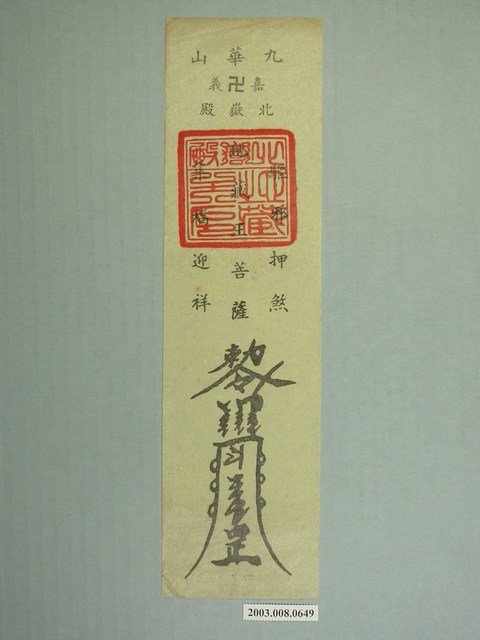 九華山
嘉卍義
北嶽殿
驅邪押煞
地藏王菩薩
集福迎祥
敕令
2003.008.0649